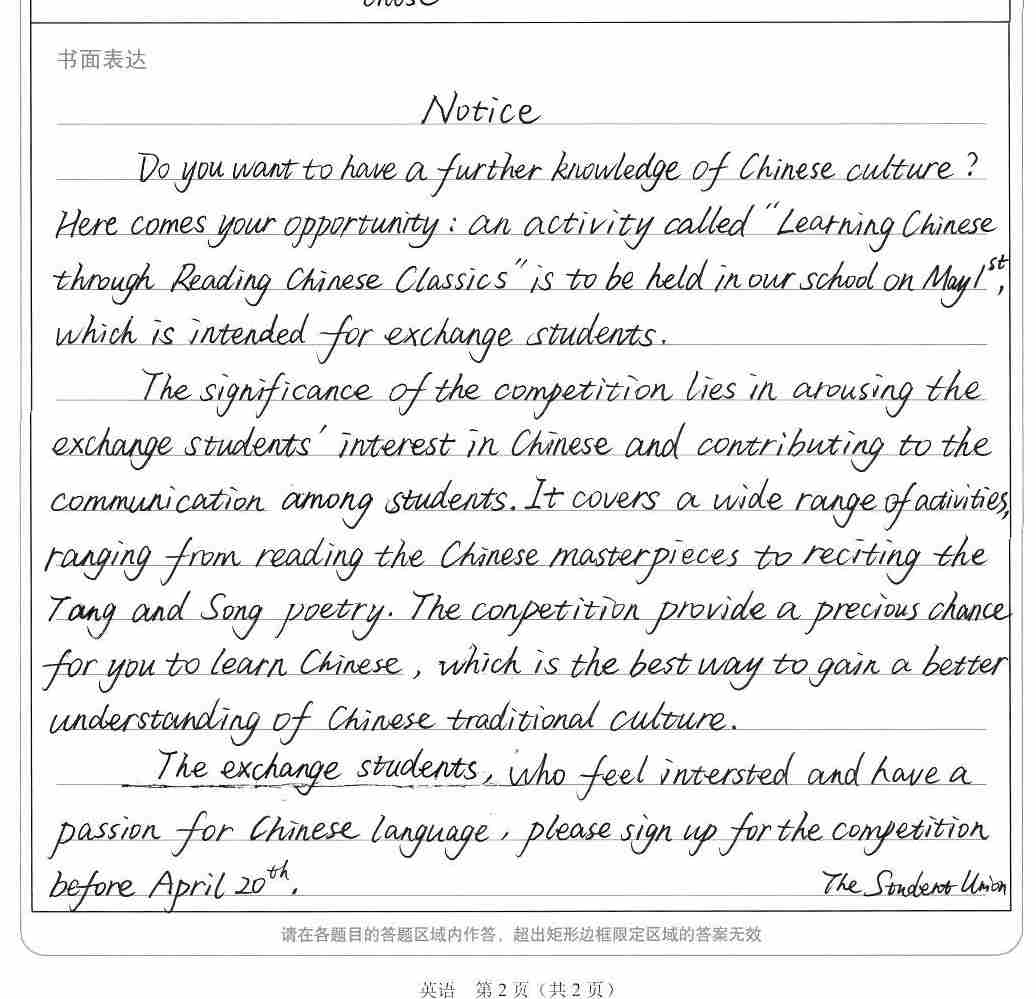 those
书面表达
Notice
Do you want to have a further knowledge of Chinese culture?
Here comes your opportunity: an activity called "Learning Chinese
through Reading Chinese Classics" is to be held in our school on May 1st,
which is intended for exchange students.
The significance of the competition lies in arousing the
exchange students' interest in Chinese and contributing to the
communication among students. It covers a wide range of activities,
ranging from reading the Chinese masterpieces to reciting the
Tang and Song poetry. The conpetition provide a precious chance
for you to learn Chinese, which is the best way to gain a better
understanding of Chinese traditional culture.
The exchange students, who feel intersted and have a
passion for Chinese language, please sign up for the competition
before April 20th.
The Student Union
请在各题目的答题区域内作答，超出矩形边框限定区域的答案无效
英语 第2页（共2页）